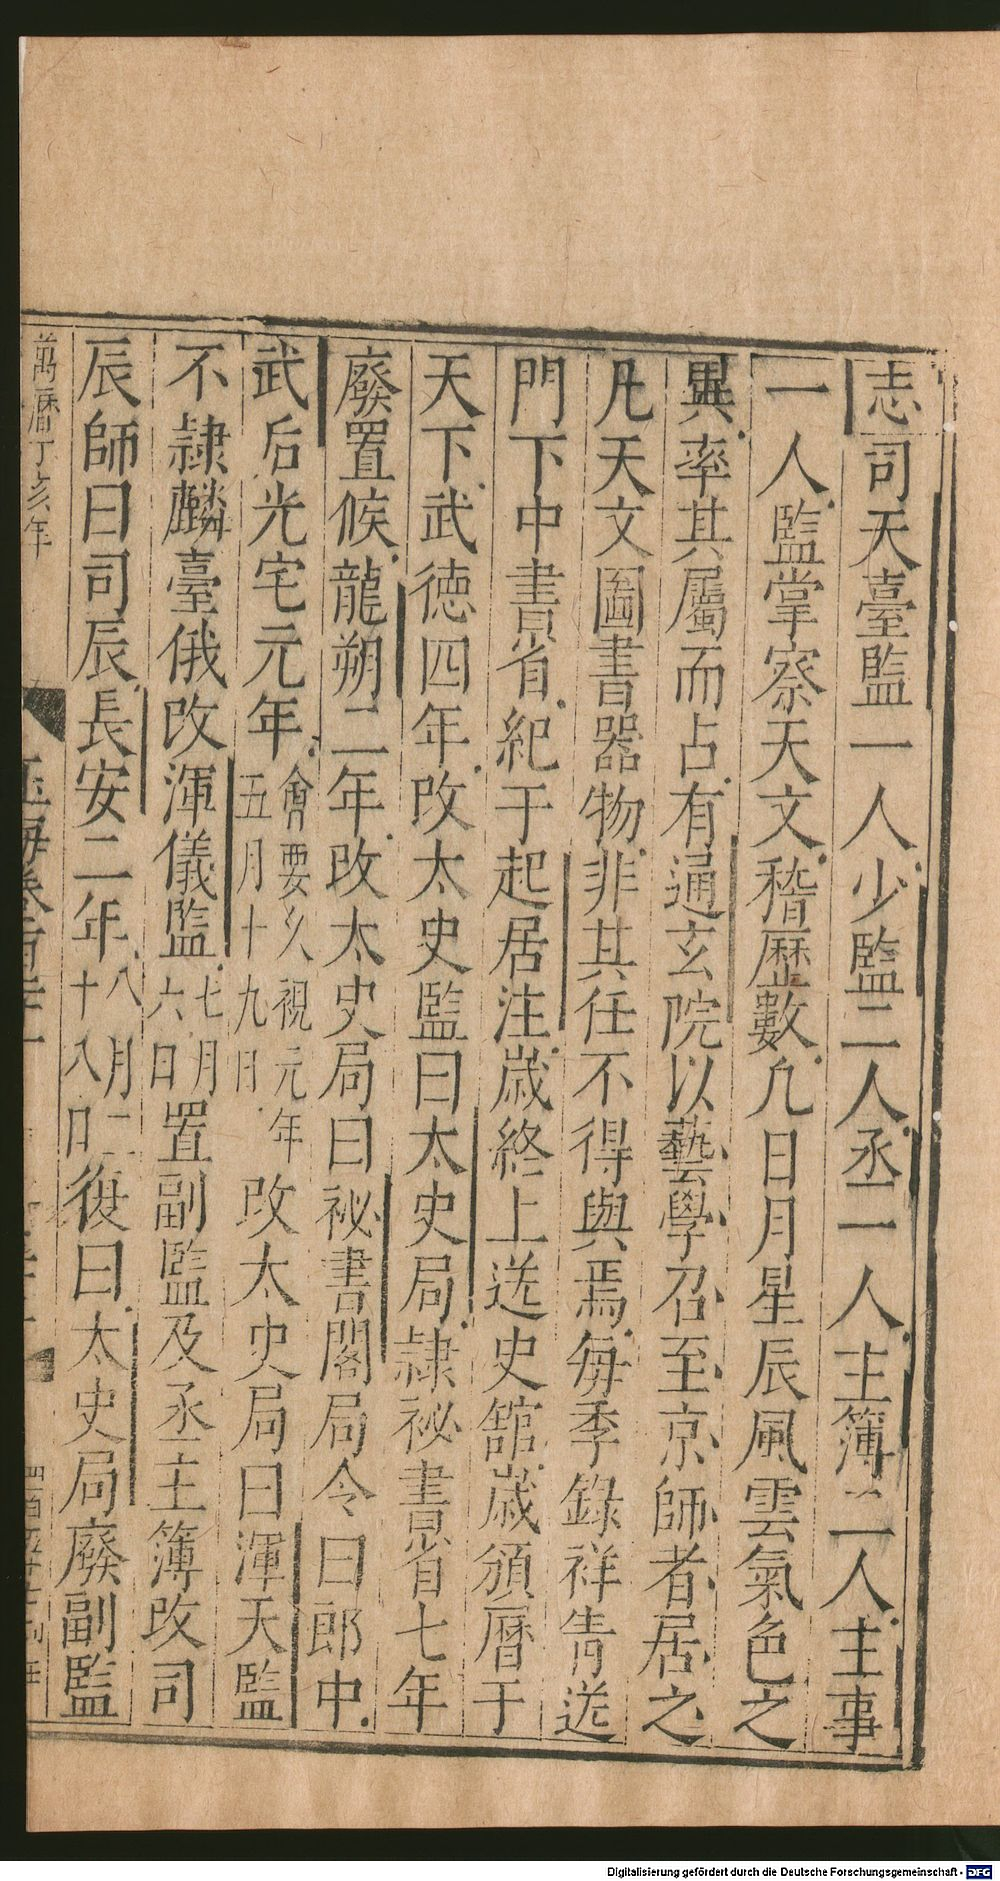 志司天臺監一人少監二人丞一人主簿二人主事
一人監掌察天文稽歷數凢日月星辰風雲氣色之
異率其屬而占有通玄院以藝學召至京師者居之
凡天文圖書器物非其任不得與焉每季錄祥眚送
門下中書省紀于起居注歲終上送史舘歲頒曆于
天下武德四年改太史監曰太史局隷祕書省七年
廢置候龍朔二年改太史局曰祕書閣局令曰郎中
武后光宅元年會要久視元年五月十九日改太史局曰渾天監
不隷麟臺俄改渾儀監七月六日置副監及丞主簿改司
辰師曰司辰長安二年八月二十八日復曰太史局廢副監
萬曆丁亥年
玉海卷百二十一